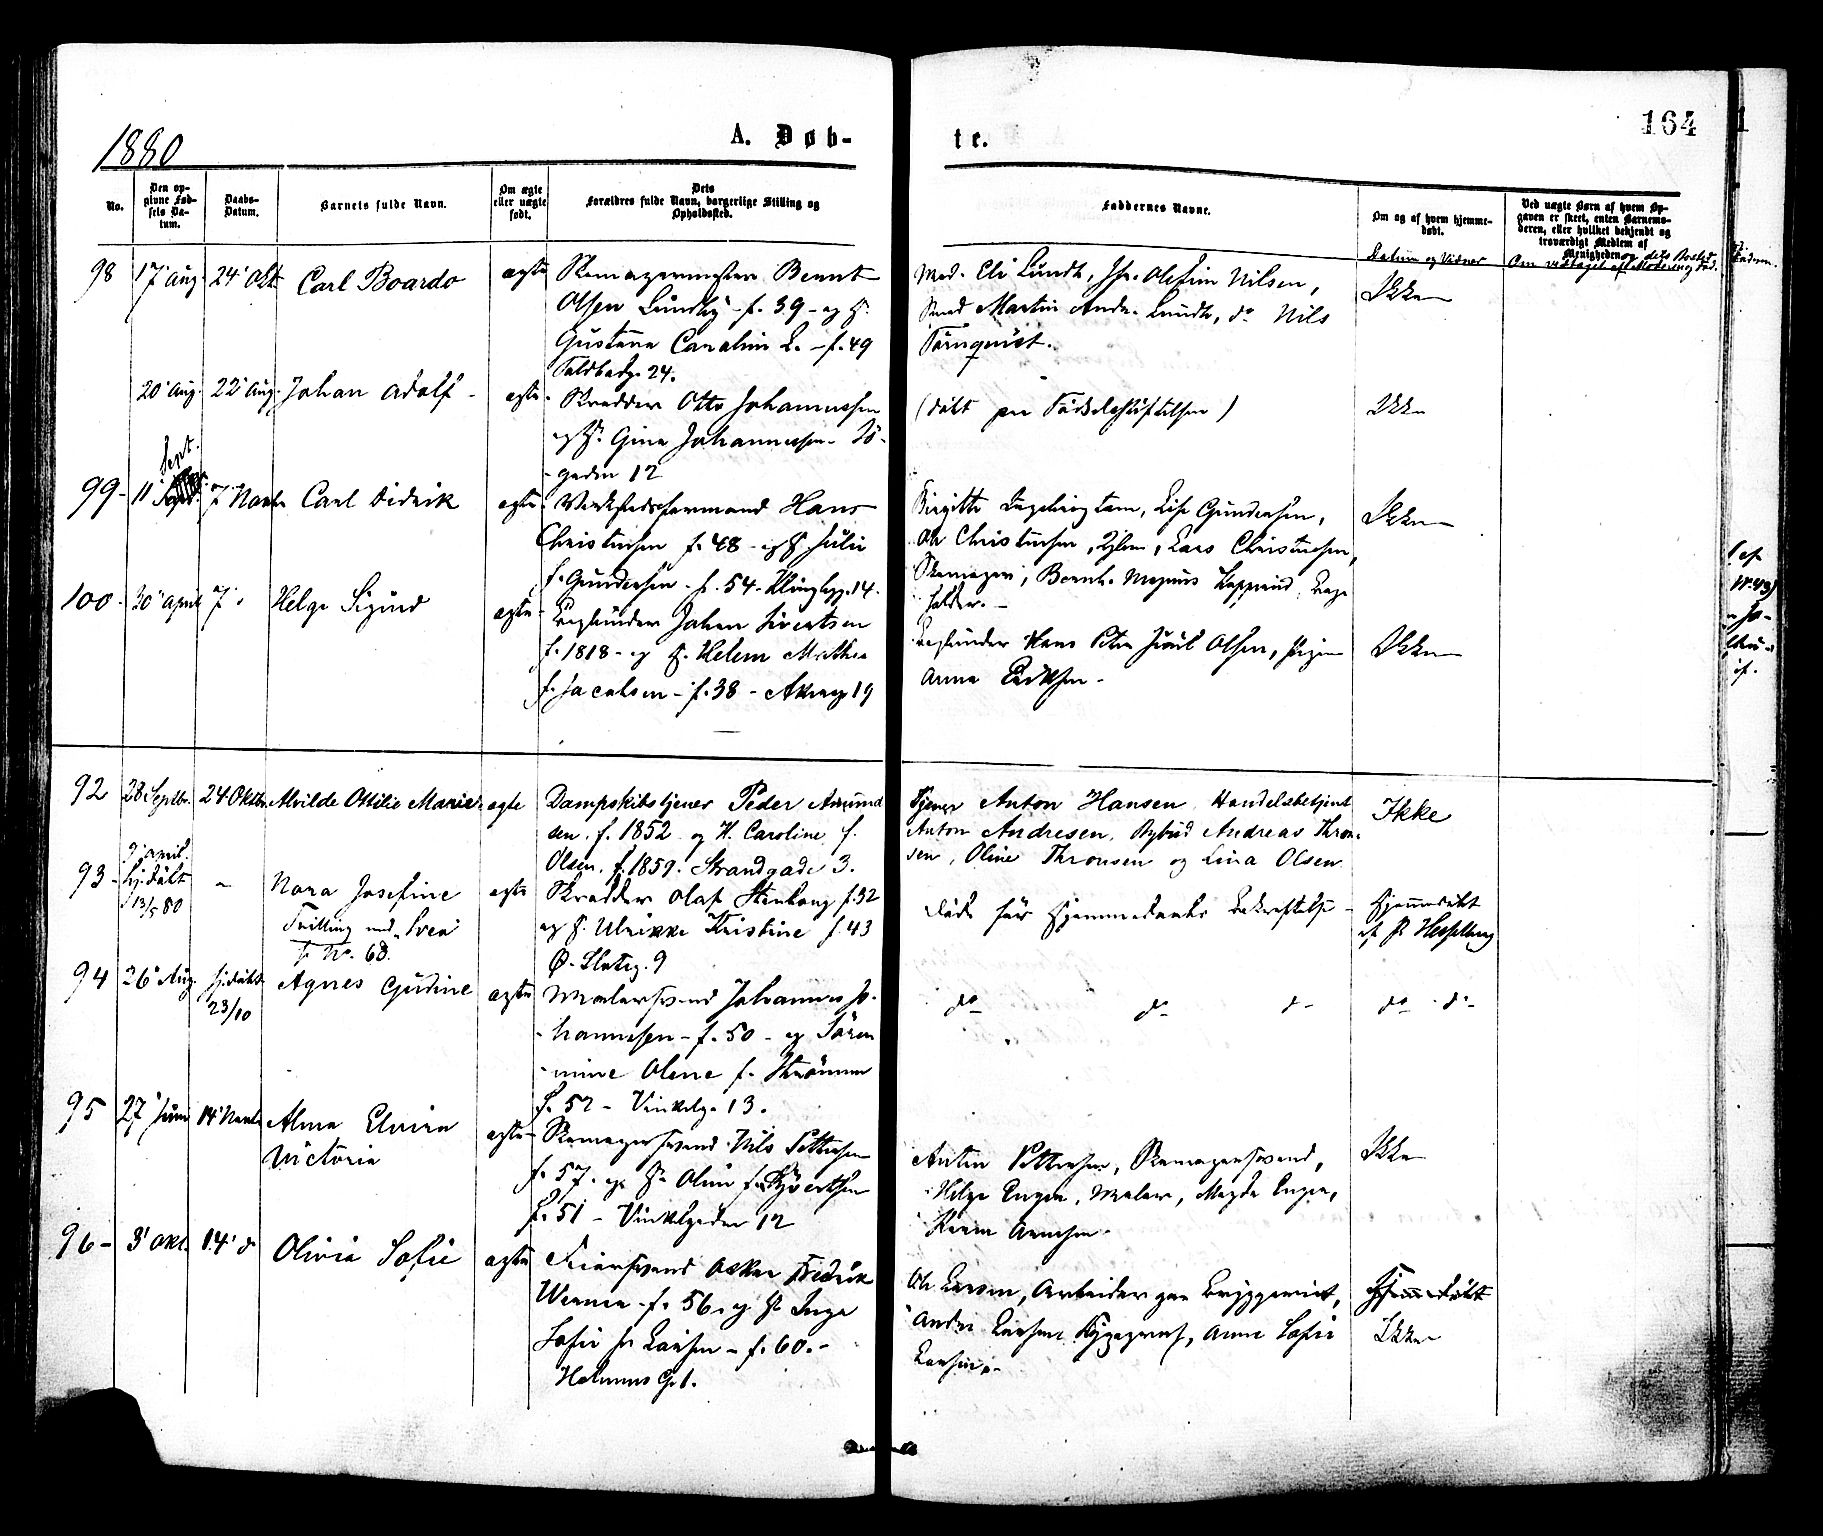 1880
A. Døb-
te.
164
No.
Den op-
givne Fød-
sels Da-
tum.
Daabs-
Datum.
Barnets fulde Navn.
Om ægte
eller uægte
født.
Dets
Forældres fulde Navn, borgerlige Stilling og
Opholdssted.
Faddernes Navne.
Om og af hvem hjemme-
døbt.
Datum og Vidner
Ved uægte Børn af hvem Op-
gaven er skeet, enten Barnemo-
deren, eller hvilket bekjendt og
troværdigt Medlem af
Menigheden
98 17' Aug 24' Okt Carl Boardo ægte Skomagermester Bernt
Olsen Lundby - f. 39 - og H.
Gustava Caroline L. - f. 49
Toldbodg. 24.
Mad. Eli Lundh, Olefine Nilsen,
Martin Andr. Lundh, do Nils
Törnquist.
Ikke
20' Aug. 22' Aug. Johan Adolf - ægte Skrædder Otto Johannessen
og H. Gina Johannessen - Sö-
gaden 12
(døbt paa Fødselsstiftelsen)
Ikke
99 - 11' Sept. 7' Novbr Carl Didrik ægte Værkstedsformand Hans
Christensen f. 48 - og H Julie
f. Gundersen - f. 54 - Klingbg. 14.
Birgitte Lise Gundersen,
Ole Christensen, Lars Christensen,
Skomager, Bernh. Magnus
Ikke
100 - 30' April 7' Helge Sigurd ægte Johan Sivertsen
f. 1818 - og H. Helene Mathea
f. Jacobsen - f. 38 - Akersg 19
Hans Peter Juul Olsen, Pigen
Anna Eriksen -
Ikke
92 28 Septbr. 24. Oktbr. Alvilde Ottilie Marie ægte Dampskibstjener Peder Amund
sen, f. 1852 og H. Caroline f.
Olsen, f. 1859. Strandgade 3.
Tjener Anton Hansen, Handelsbetjent
Anton Andresen, Bybud Andreas Thron-
sen, Oline Thronsen og Lina Olsen
Ikke
93 - 9' April. hj.døbt 13/5 80 Nora Josefine
Tvilling med "Svea"
No. 68.
ægte Skrædder Olaf Stenberg f. 32
og H. Ulrikke Kristine f. 43
Ø. Slotsg. 9
Døde før Hjemmedaabs Bekræftelse - Hjemmedøbt
af P. Hesselberg
94 26' Aug. hj.døbt
23/10
Agnes Gudine ægte Malersvend Johannes Jo-
hannesen - f. 50 - og Sören-
mine Olene f. Strömmen
f. 52 - Vinkelg. 13.
do do do do do
95 27' Juni 14' Novbr Alma Elvira
Victoria
ægte Skomagersvend Nils Pettersen
f. 57 - og H. Oline f. Syvertsen
f. 51 - Vinkelgaden 12
Anton Pettersen, Skomagersvend,
Helge Engen, Maler, Magda Engen,
Karen Arnesen.
Ikke
96 - 3' Okt. 14' do Olivia Sofie ægte Feiersvend Oskar Fredrik
Werner - f. 56 - og H. Inga
Sofie f. Larsen - f. 60. -
Holmens G. 1.
Ole Larsen, Arbeider paa Bryggeriet,
Andr. Larsen Typograf, Anne Sofie
Larsen. -
Hjemmedøbt
Ikke